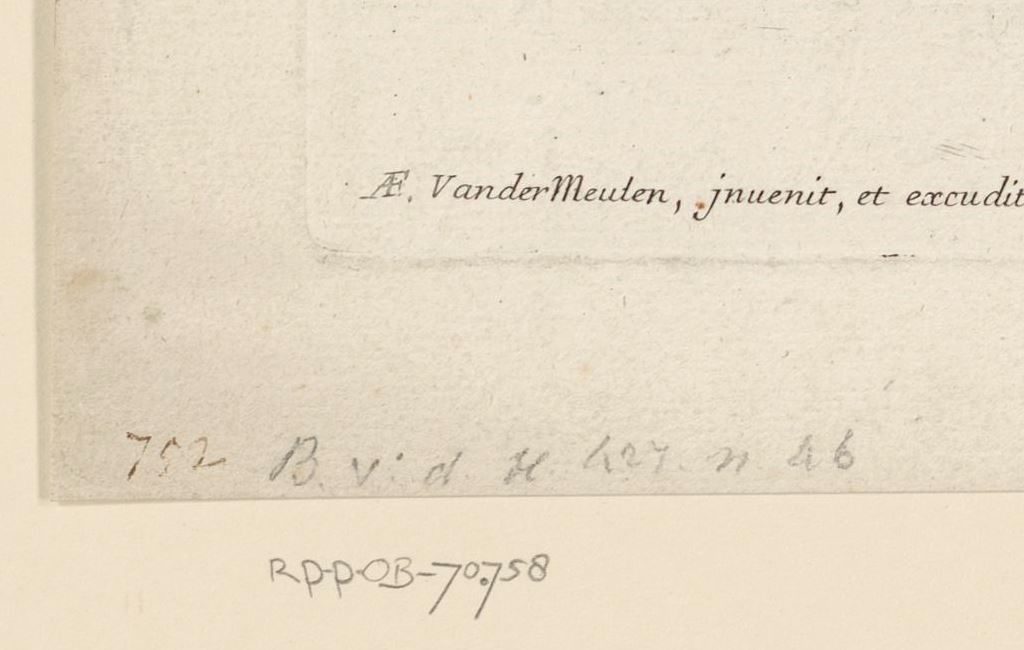 Æ. VanderMeulen, jnuenit, et excudit
752 B. v: d. H. 427. n 46
RP-P-OB-70.758